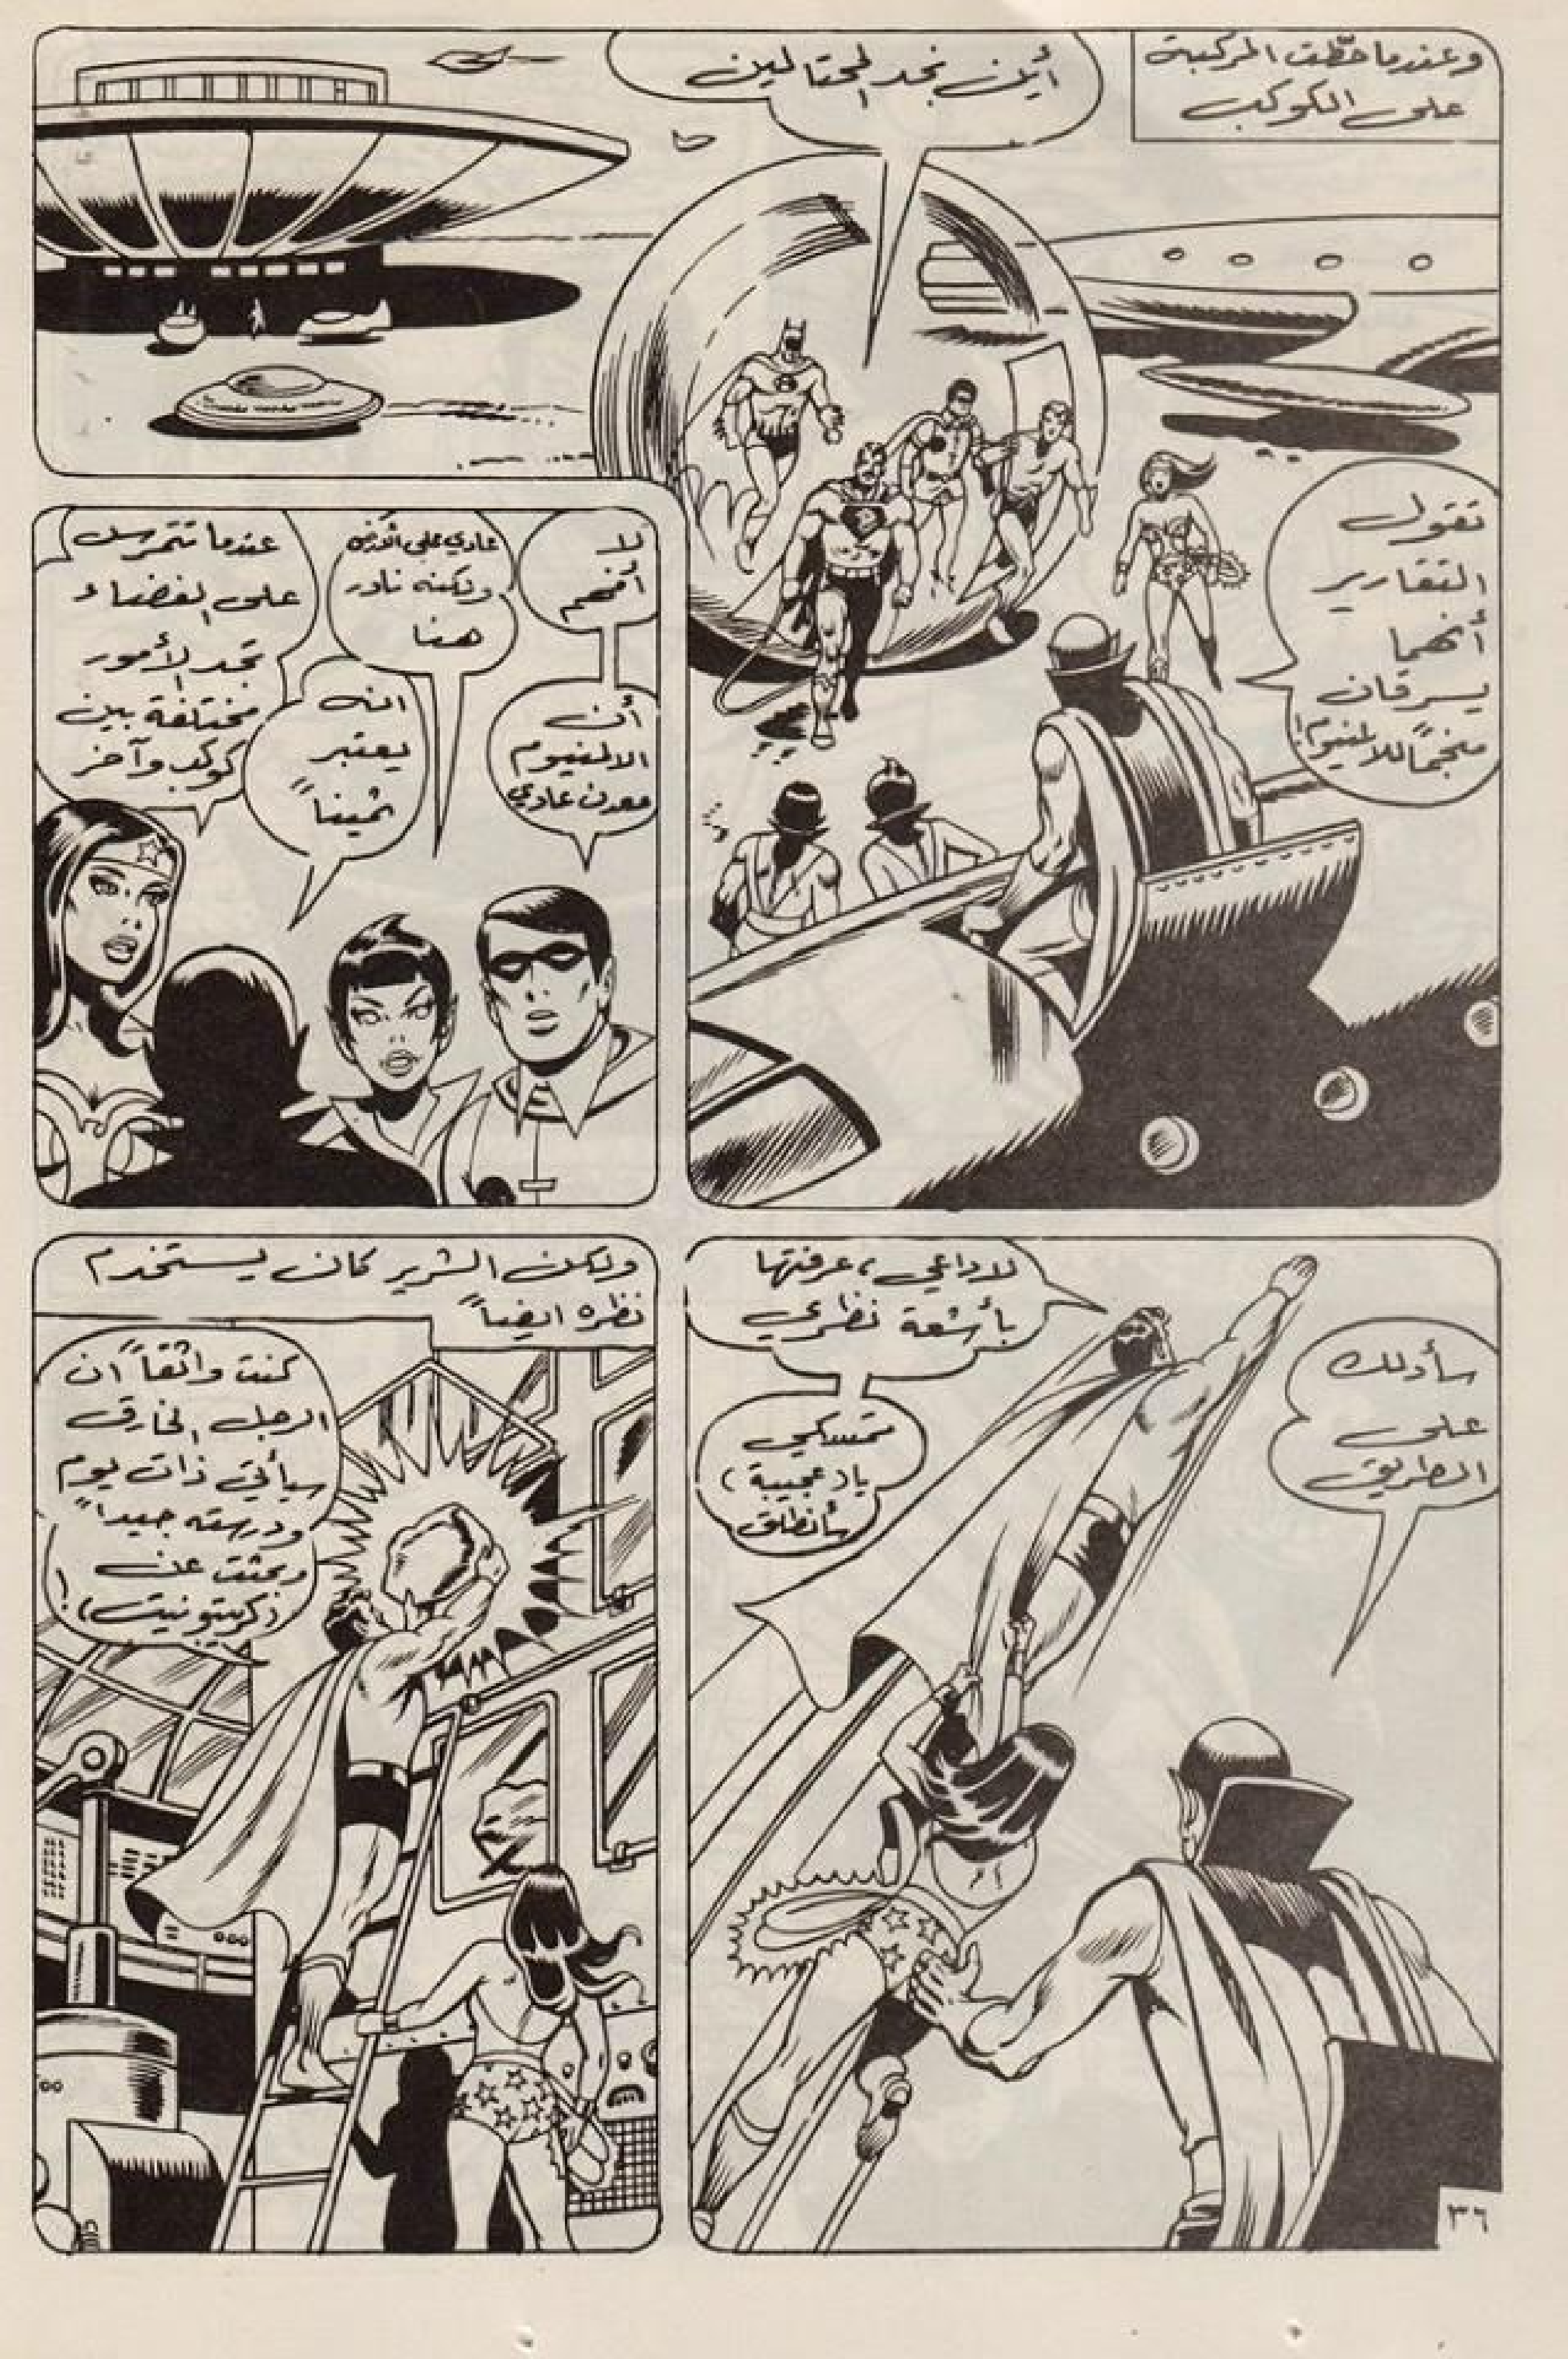 وعندما حطّت المركبة
على الكوكب
أين نجد المحتالين
تقول
التقارير
أنهما
يسرقان
منجماً للالمنيوم!
لا
أفهم
أن
الالمنيوم
معدن عادي
عادي على الأرض
ولكنه نادر
هنا
انه
يعتبر
ثميناً
عندما تتمرس
على الفضاء
تجد الأمور
مختلفة بين
كوكب وآخر
سأدلك
على
الطريق
لا داعي، عرفتها
بأشعة نظري
تمسكي
يا (عجيبة)
سأنطلق
ولكن الشرير كان يستخدم
نظره ايضاً
كنت واثقاً ان
الرجل الخارق
سيأتي ذات يوم
ودرسته جيداً
وبحثت عن
(كريبتونيت)!
٣٦